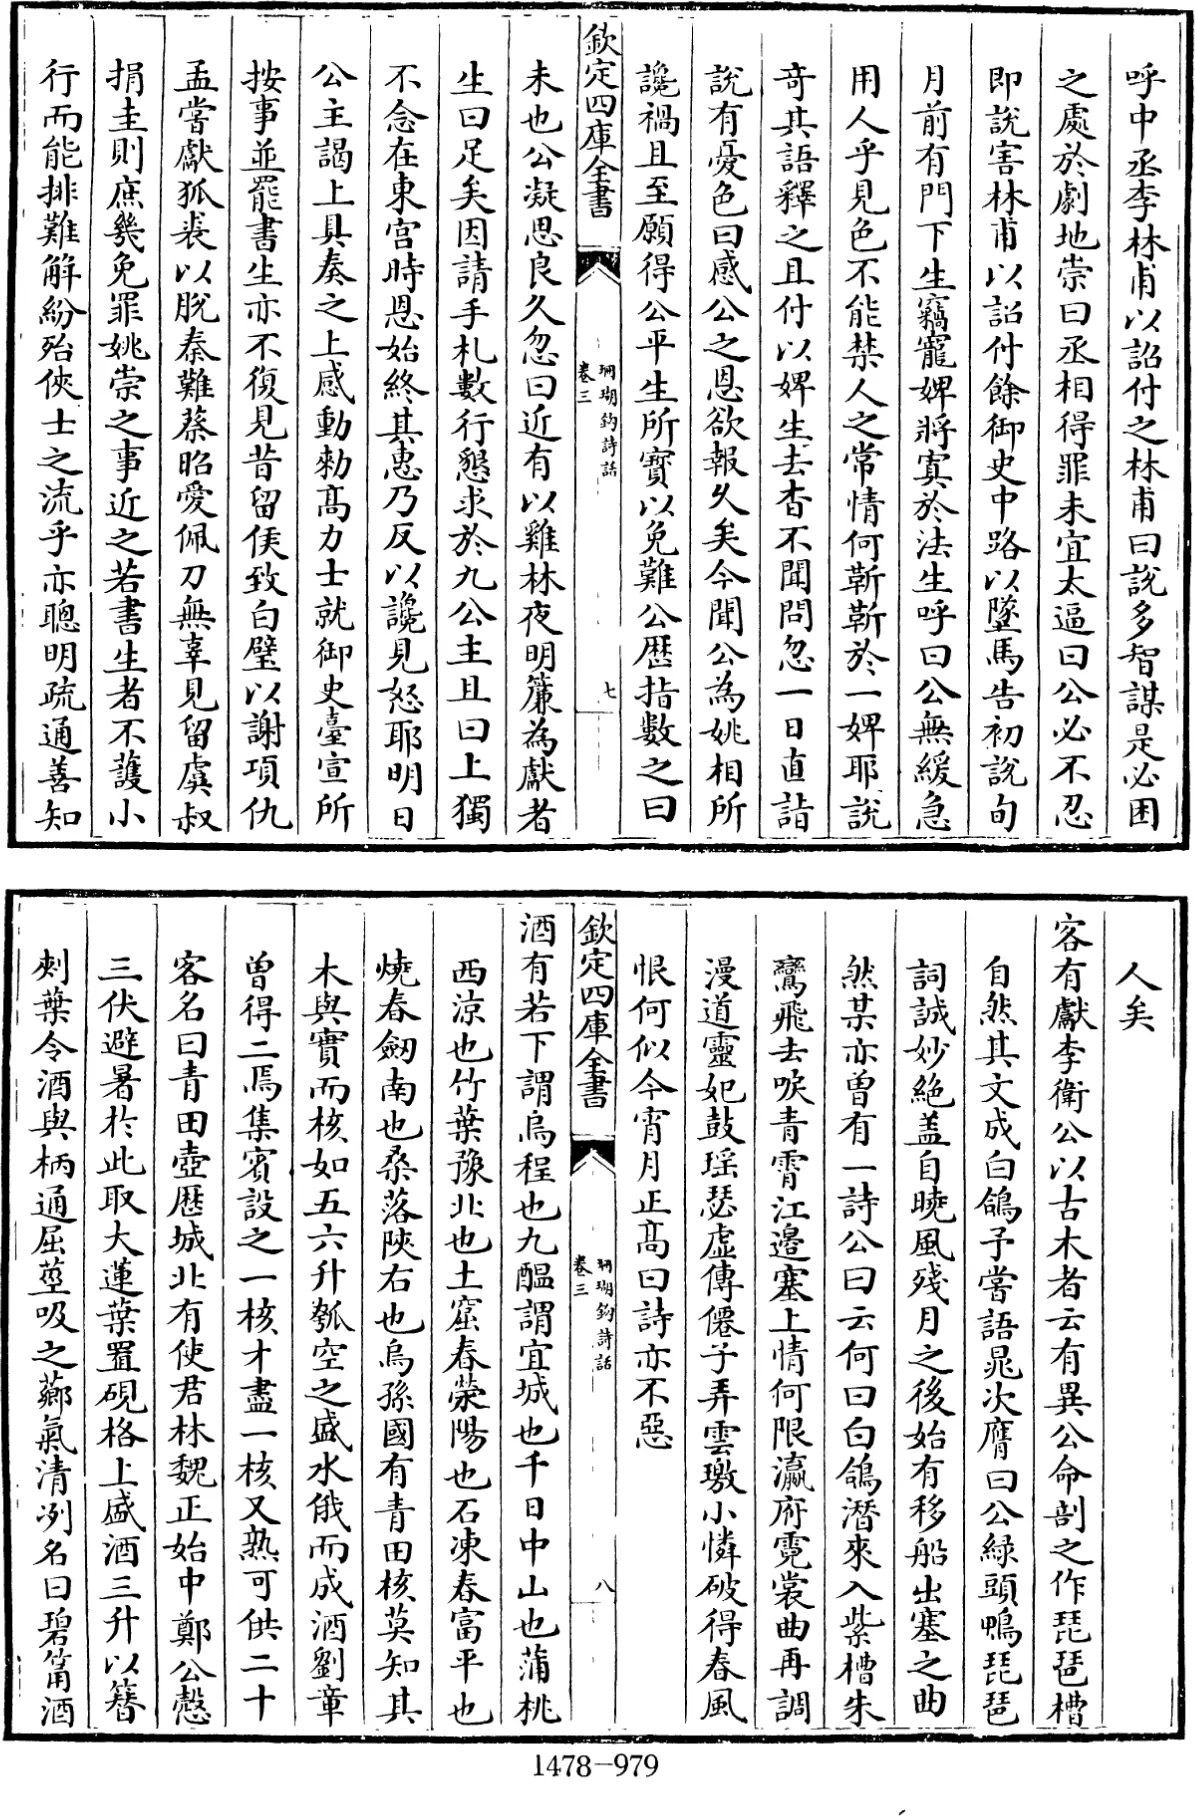 呼中丞李林甫以詔付之林甫曰說多智謀是必困
之處於劇地崇曰丞相得罪未宜太逼曰公必不忍
即說害林甫以詔付餘御史中路以墜馬告初說旬
月前有門下生竊寵婢將寘於法生呼曰公無緩急
用人乎見色不能禁人之常情何靳靳於一婢耶說
奇其語釋之且付以婢生去杳不聞問忽一日直詣
說有憂色曰感公之恩欲報久矣今聞公為姚相所
讒禍且至願得公平生所寳以免難公歴指數之曰
欽定四庫全書
珊瑚鈎詩話
卷三
七
未也公凝思良久忽曰近有以雞林夜明簾為獻者
生曰足矣因請手札數行懇求於九公主且曰上獨
不念在東宮時恩始終其惠乃反以讒見怒耶明日
公主謁上具奏之上感動勅高力士就御史臺宣所
按事並罷書生亦不復見昔留侯致白璧以謝項仇
孟嘗獻狐裘以脫秦難蔡昭愛佩刀無辜見留虞叔
捐圭則庶幾免罪姚崇之事近之若書生者不護小
行而能排難解紛殆俠士之流乎亦聰明疏通善知
人矣
客有獻李衛公以古木者云有異公命剖之作琵琶槽
自然其文成白鴿予嘗語晁次膺曰公緑頭鴨琵琶
詞誠妙絕盖自曉風殘月之後始有移船出塞之曲
然某亦曽有一詩公曰云何曰白鴿潜來入紫槽朱
鸞飛去唳青霄江邉塞上情何限瀛府霓裳曲再調
漫道靈妃鼓瑶瑟虚傳僊子弄雲璈小憐破得春風
恨何似今宵月正高曰詩亦不惡
欽定四庫全書
珊瑚鈎詩話
卷三
八
酒有若下謂烏程也九醖謂宜城也千日中山也蒲桃
西涼也竹葉豫北也土窟春滎陽也石凍春富平也
燒春劒南也桑落陜右也烏孫國有青田核莫知其
木與實而核如五六升瓠空之盛水俄而成酒劉章
曽得二焉集賓設之一核才盡一核又熟可供二十
客名曰青田壺歴城北有使君林魏正始中鄭公慤
三伏避暑於此取大蓮葉置硯格上盛酒三升以簪
刺葉令酒與柄通屈莖吸之薌氣清冽名曰碧筩酒
1478-979